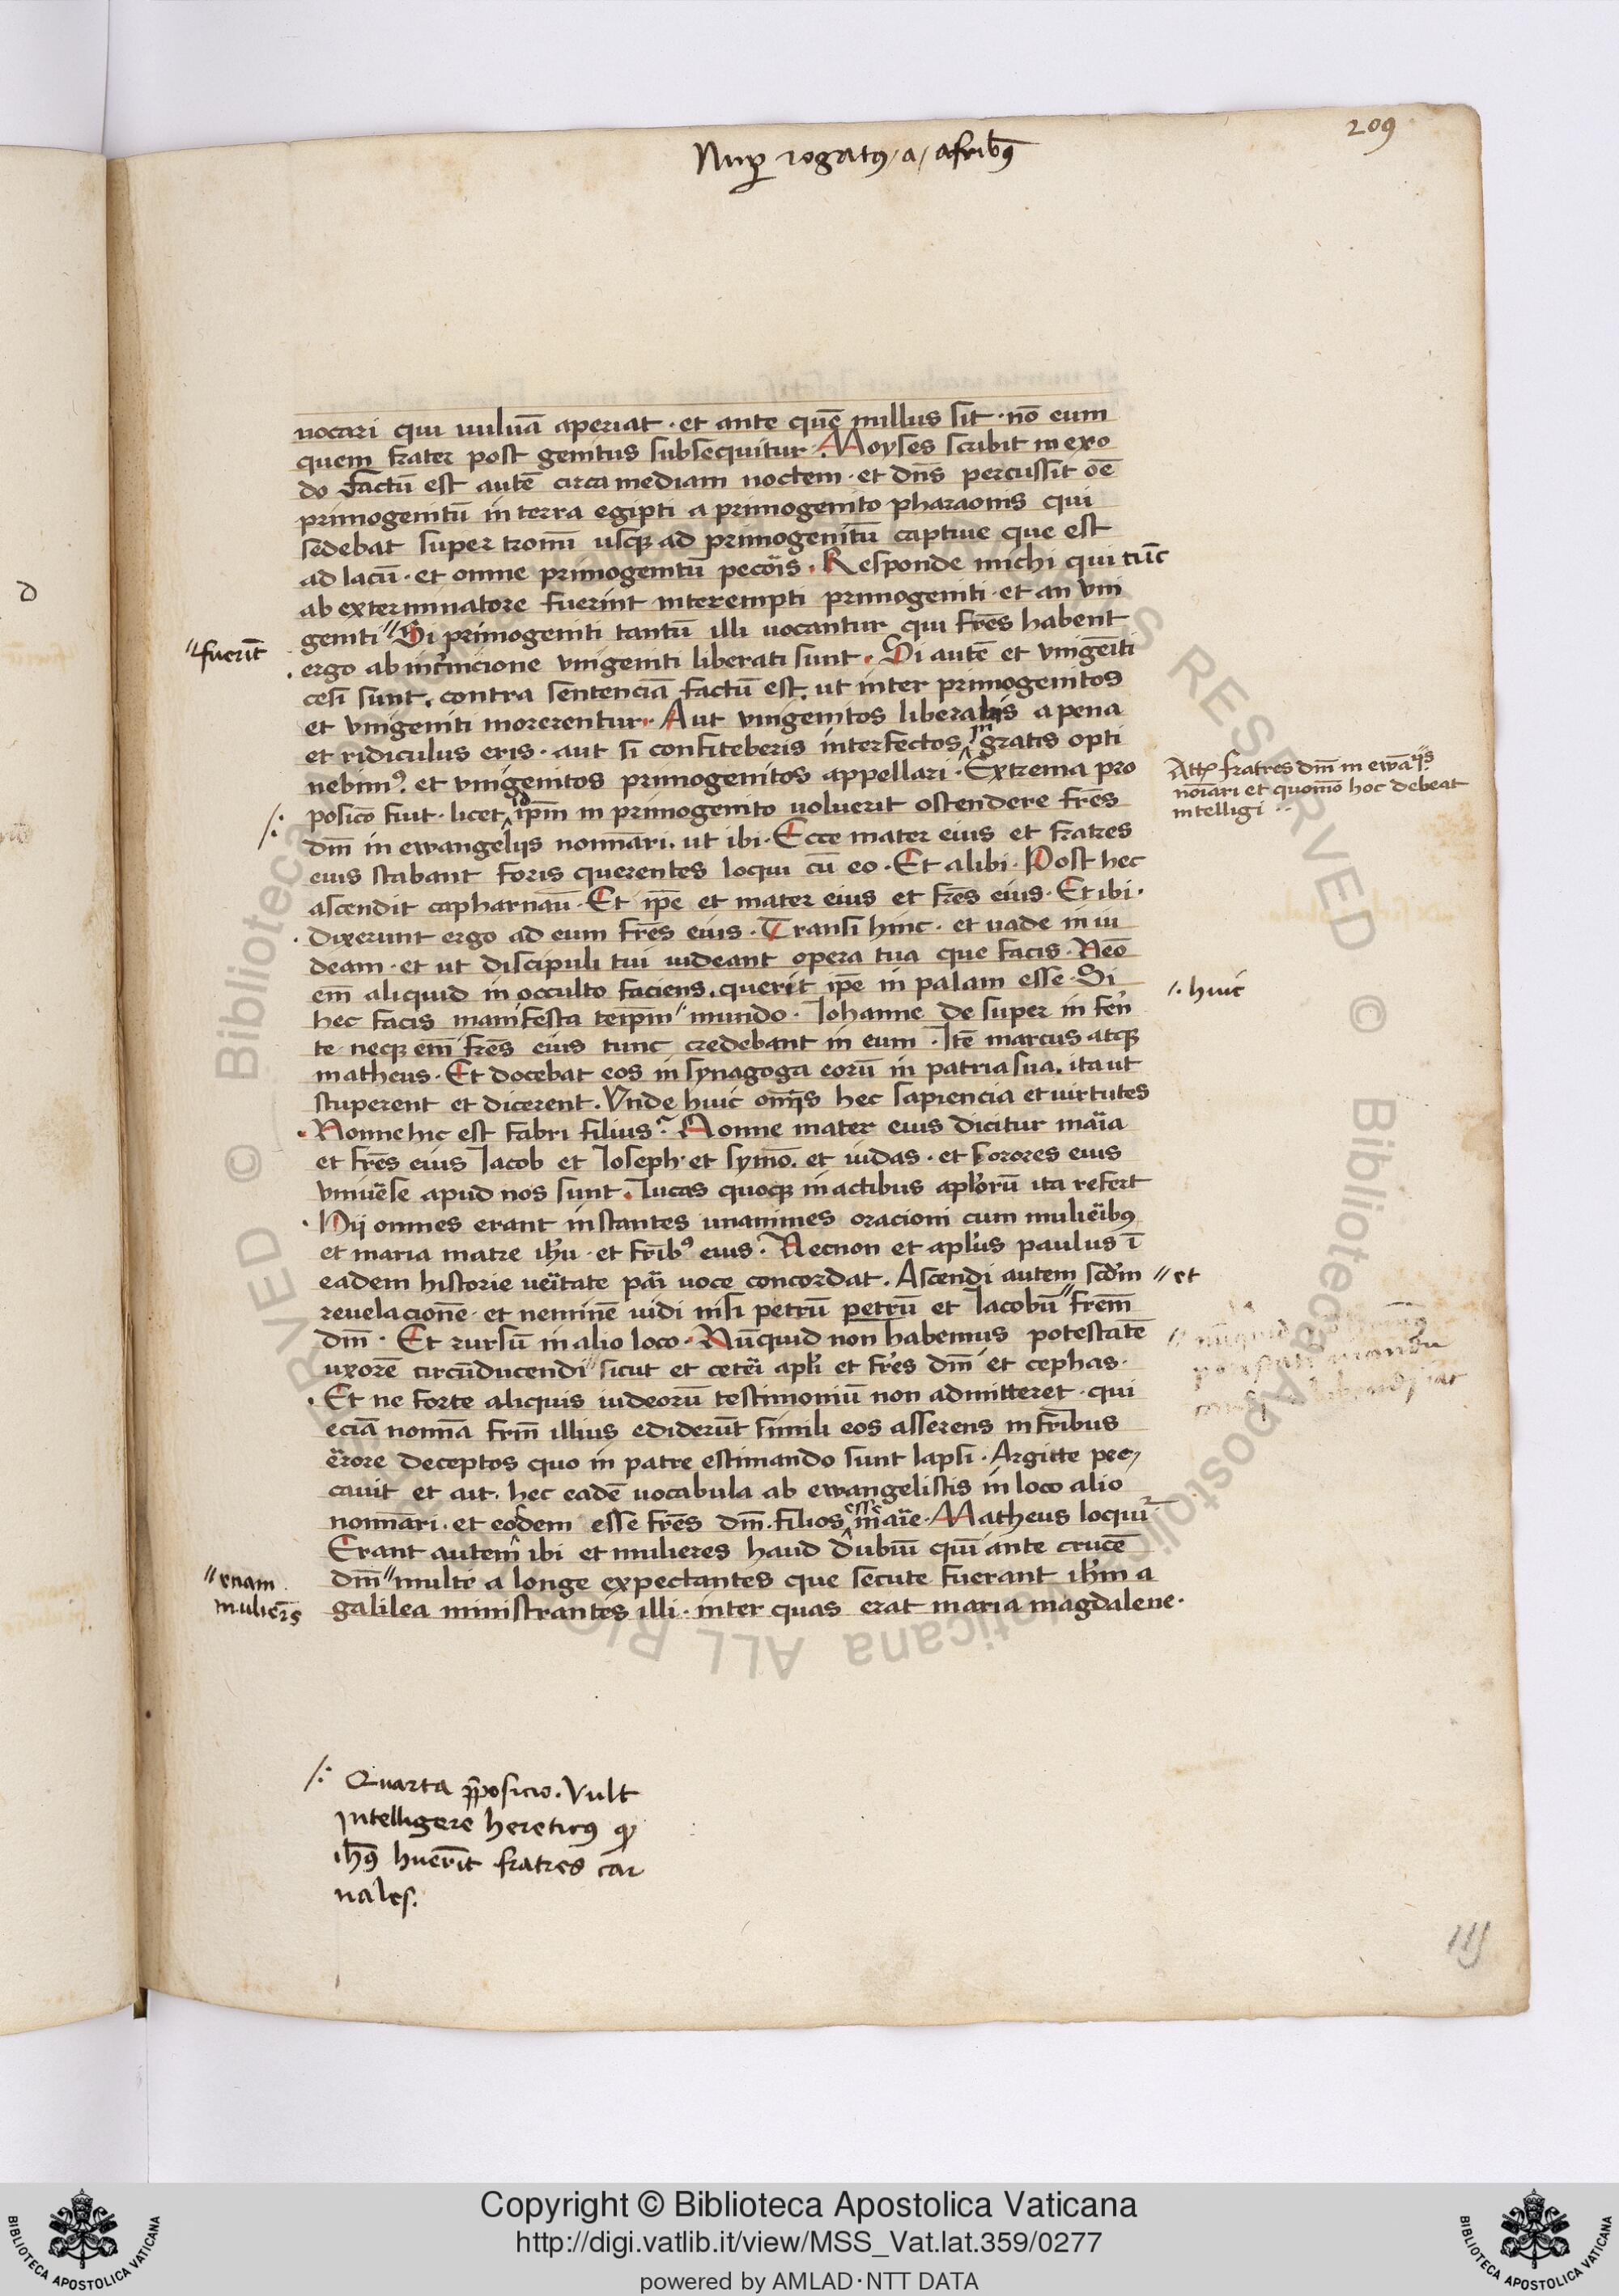 209
Nuꝑ rogatꝰ a fribꝰ
uocari qui uuluā aperiat · et ante quē nullus sit · nō eum
quem frater post genitus subsequitur · Moyses scribit in exo
do factū est autē circa mediam noctem · et dn̄s percussit oē
primogenitū in terra egipti a primogenito pharaonis qui
sedebat super tronū usqꝫ ad primogenitū captiue que est
ad lacū · et omne primogenitū pecoīs · Responde michi qui tūc
ab exterminatore fuerint interempti primogeniti · et an vni
geniti " Si primogeniti tantū illi uocantur qui frēs habent
"fuerīt
ergo ab intīnicione vnigeniti liberati sunt · Si autē et vnigenīti
cesi sunt · contra sentenciā factū est · ut inter primogenitos
et vnigeniti morerentur · Aut vnigenitos liberabis a pena
et ridiculus eris · aut si confiteberis interfectos in gratis opti
nebimꝰ · et vnigenitos primogenitos appellari · Extrema pro
posicō fuit · licet id ip̄m in primogenito uoluerit ostendere frēs
dn̄i in ewangeliis nominari · ut ibi · Ecce mater eius et fratres
fratres dn̄i in ewāgiis
noīari et quomō hoc debeat
intelligi
eius stabant foris querentes loqui cū eo · Et alibi · Post hec
ascendit capharnaū · Et ip̄e et mater eius et frēs eius · Et ibi ·
dixerunt ergo ad eum frēs eius · Transi hinc · et uade in iu
deam · et ut discipuli tui uideant opera tua que facis · Neō
em̄ aliquid in occulto faciens · querit ip̄e in palam esse · Si
hec facis manifesta teip̄m " mundo · Iohanne de super in feren
/· huic
te neqꝫ em̄ frēs eius tunc credebant in eum · Itē marcus atqꝫ
matheus · Et docebat eos in synagoga eorū in patria sua · ita ut
stuperent et dicerent · Vnde huic om̄s hec sapiencia et uirtutes
· Nonne hic est fabri filius · Nonne mater eius dicitur maīa
et frēs eius Iacob et Ioseph · et symō · et iudas · et sorores eius
vniūse apud nos sunt · Lucas quoqꝫ in actibus apl'orū ita refert
· Hii omnes erant instantes unanimes oracioni cum mulieībꝰ
et maria matre ih'u · et frībꝰ eius · Necnon et apl's paulus ī
eadem historie ueītate paī uoce concordat · Ascendi autem scd'm
" et
reuelacionē · et neminē uidi nisi petrū petrū et Iacobū " frēm
dn̄i · Et rursū in alio loco · Nūquid non habemus potestatē
uxorē circūducendi " sicut et ceteī apl'i et fr̄es dn̄i et cephas ·
· Et ne forte aliquis iudeorū testimoniū non admitteret · qui
eciā nomīa frm̄ illius ediderūt simili eos asserens in frībus
ērore deceptos quo in patre estimando sunt lapsi · Argutte pre
cauit et ait · hec eadē uocabula ab ewangelistis in loco alio
nominari · et eosdem esse frēs dn̄i · filios esse maīe · Matheus loquiꝛ
Erant autem ibi et mulieres haud dubiū quī ante crucē
dn̄i " multe a longe expectantes que secute fuerant ih'm a
galilea ministrantes illi · inter quas erat maria magdalene ·
" etiam
mulierēs
/· Quarta ꝓposicio · Vult
intelligere hereticꝰ ꝙ
ih̄s huerīt fratres car
nales.
Copyright © Biblioteca Apostolica Vaticana
http://digi.vatlib.it/view/MSS_Vat.lat.359/0277
powered by AMLAD·NTT DATA